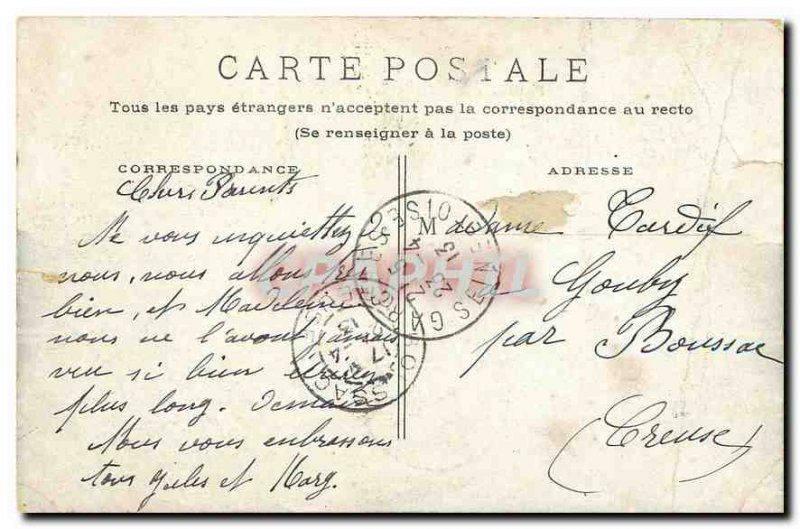 CARTE POSTALE
Tous les pays étrangers n'acceptent pas la correspondance au recto
(Se renseigner à la poste)
CORRESPONDANCE
Chers Parents
Ne vous inquiettez
nous, nous allons
bien, et Madeleine
nous ne l'avont jamais
vu si bien
plus long. Demain
Nous vous enbrassons
tous Jules et Marg.
ADRESSE
Madame Tardif
Gouby
par Boussac
(Creuse)